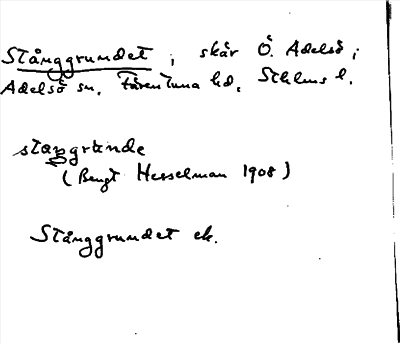 Stånggrundet, skär Ö. Adelsö i
Adelsö sn, Färentuna hd, Sthlms l.
stangrunde
(Bengt Hesselman 1908)
Stånggrundet ek.